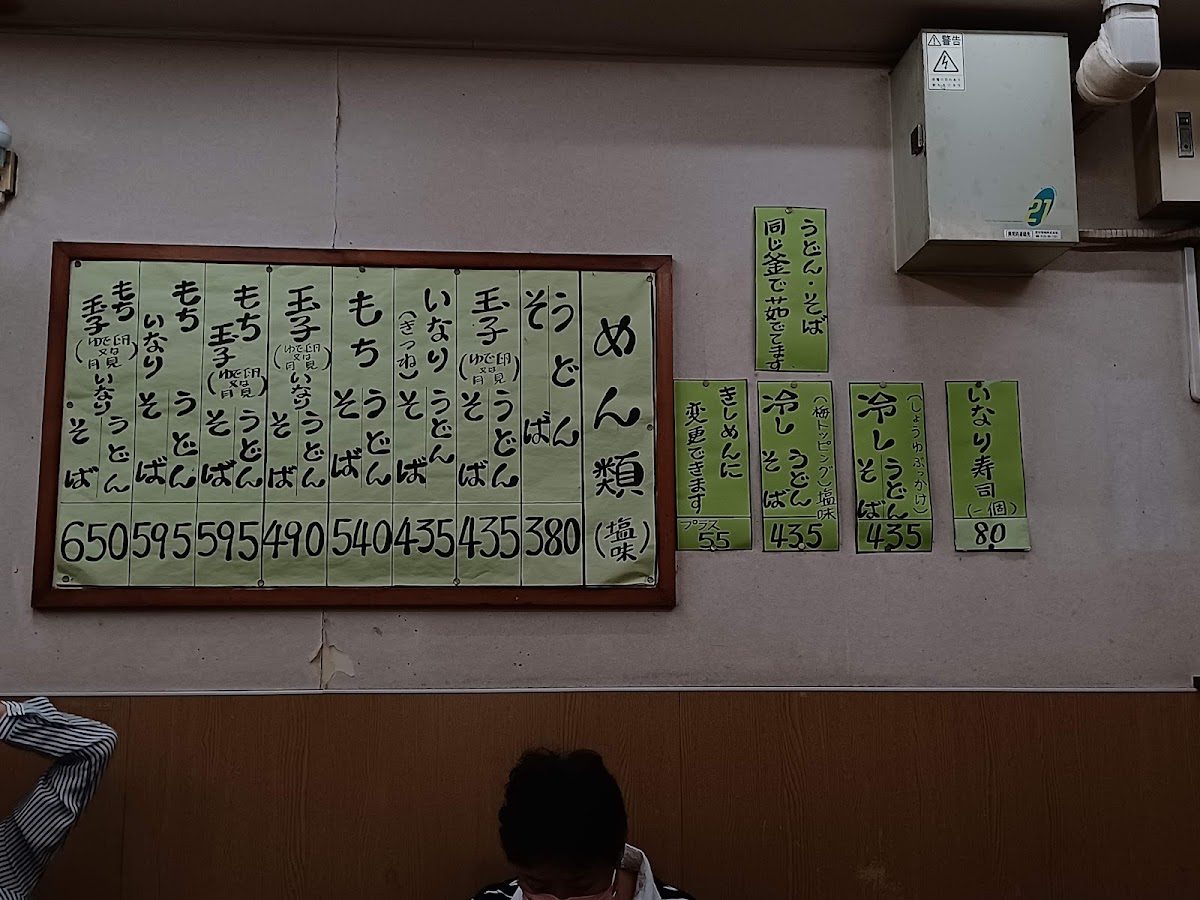 めん類
(塩味)
うどん
そば
380
玉子(ゆで卵又は月見)うどん
そば
435
いなり(きつね)うどん
そば
435
もち うどん
そば
540
玉子(ゆで卵又は月見)いなり うどん
そば
490
もち
玉子(ゆで卵又は月見)うどん
そば
595
もち
いなり うどん
そば
595
もち
玉子(ゆで卵又は月見)いなり うどん
そば
650
うどん・そば
同じ釜で茹でてます
きしめんに
変更できます
プラス
55
(梅トッピング)塩味
冷し うどん
そば
435
(しょうゆぶっかけ)
冷し うどん
そば
435
いなり寿司
(一個)
80
警告
27